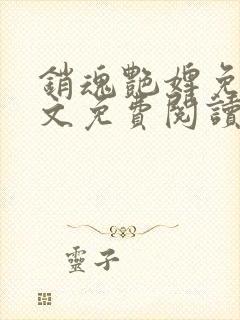 銷魂艷婢免
文免費閱讀
靈子